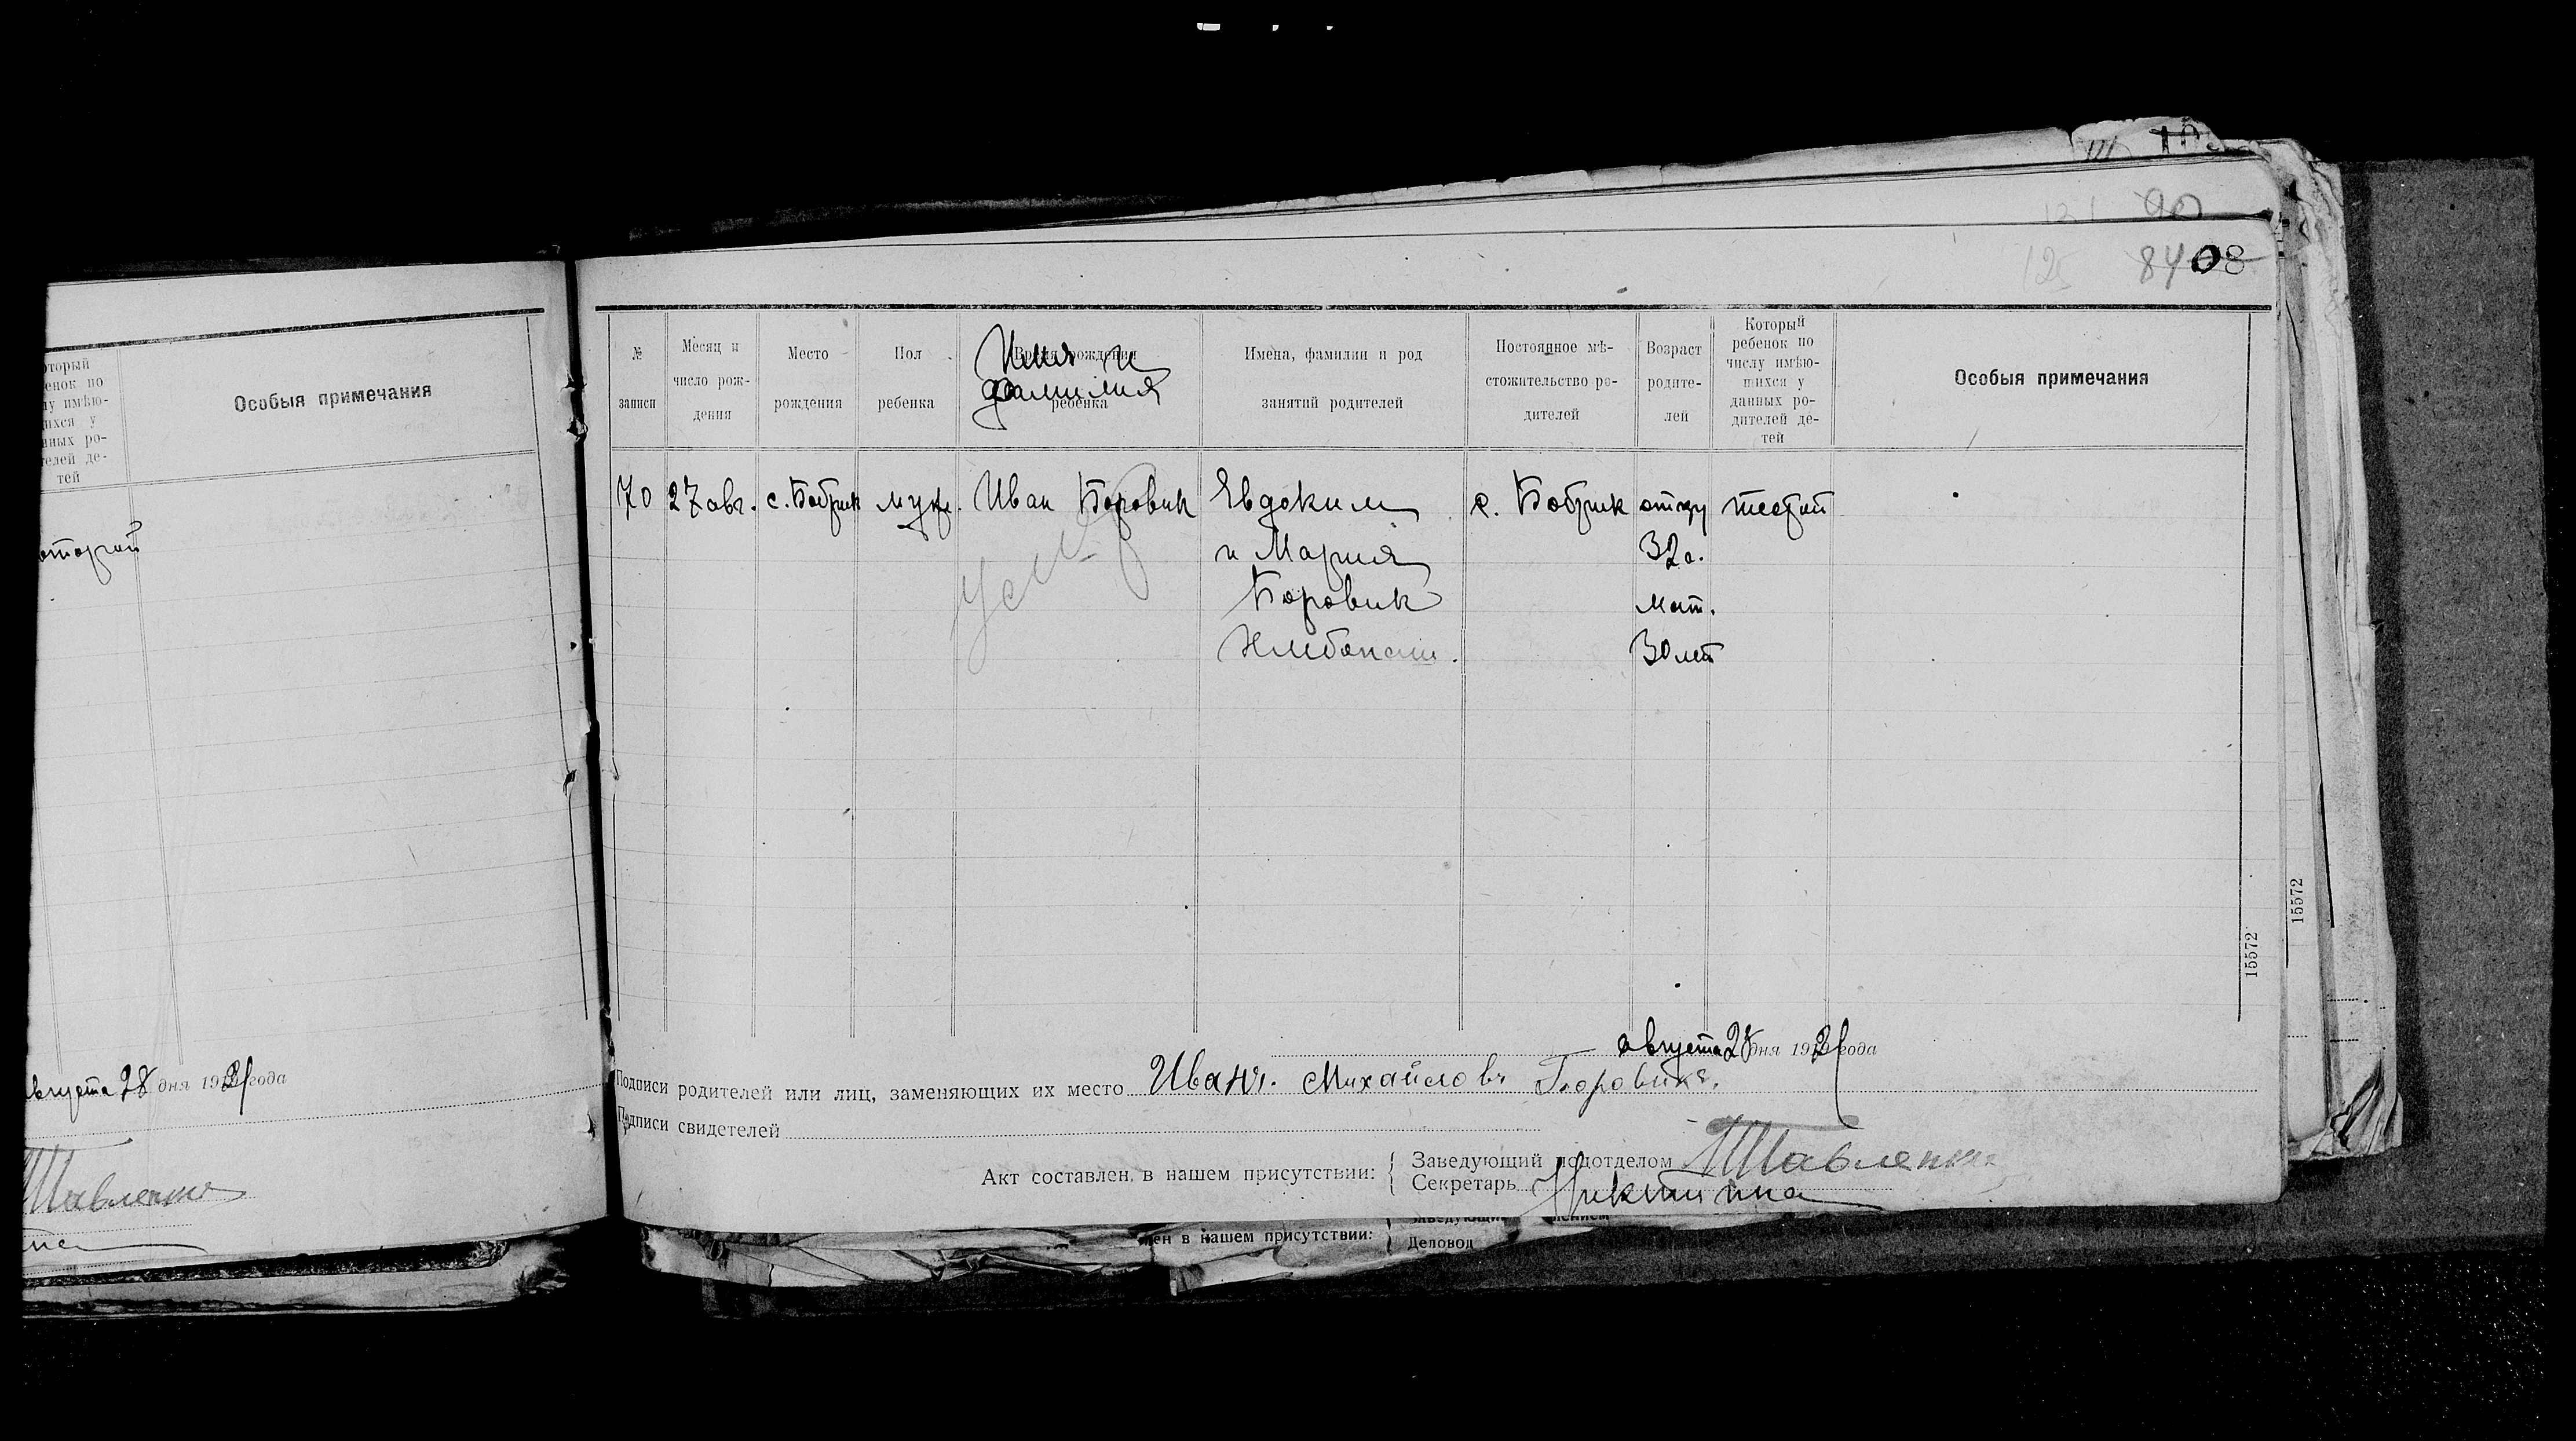 90
125 84 08
оторый
енок по
лу имѣю-
щихся у
нных ро-
телей де-
тей
Особыя примечания
оторий
августа 28 дня 1921 года
Шавленко
№ записи
Месяц и число рож-дения
Место рождения
Пол ребенка
Время рождения ребенка
Имя и фамилия
Имена, фамилии и род занятий родителей
Постоянное мѣ-стожительство ро-дителей
Возраст родите-лей
Который ребенок по числу имѣю-щихся у данных ро-дителей де-тей
Особыя примечания
70 27 авг. с. Бобрик муж. Иван Боровик Евдоким с. Бобрик отцу шестий
и Мария 32 г.
Боровик мат.
Хлибопаш. 30 лет
15572
15572
августа 28 дня 1921 года
Подписи родителей или лиц, заменяющих их место Иванъ Михайловъ Боровикъ.
Подписи свидетелей
Акт составлен в нашем присутствии:
Заведующий подотделом Шавленко
Секретарь Никитина
ен в нашем присутствии:
Деловод